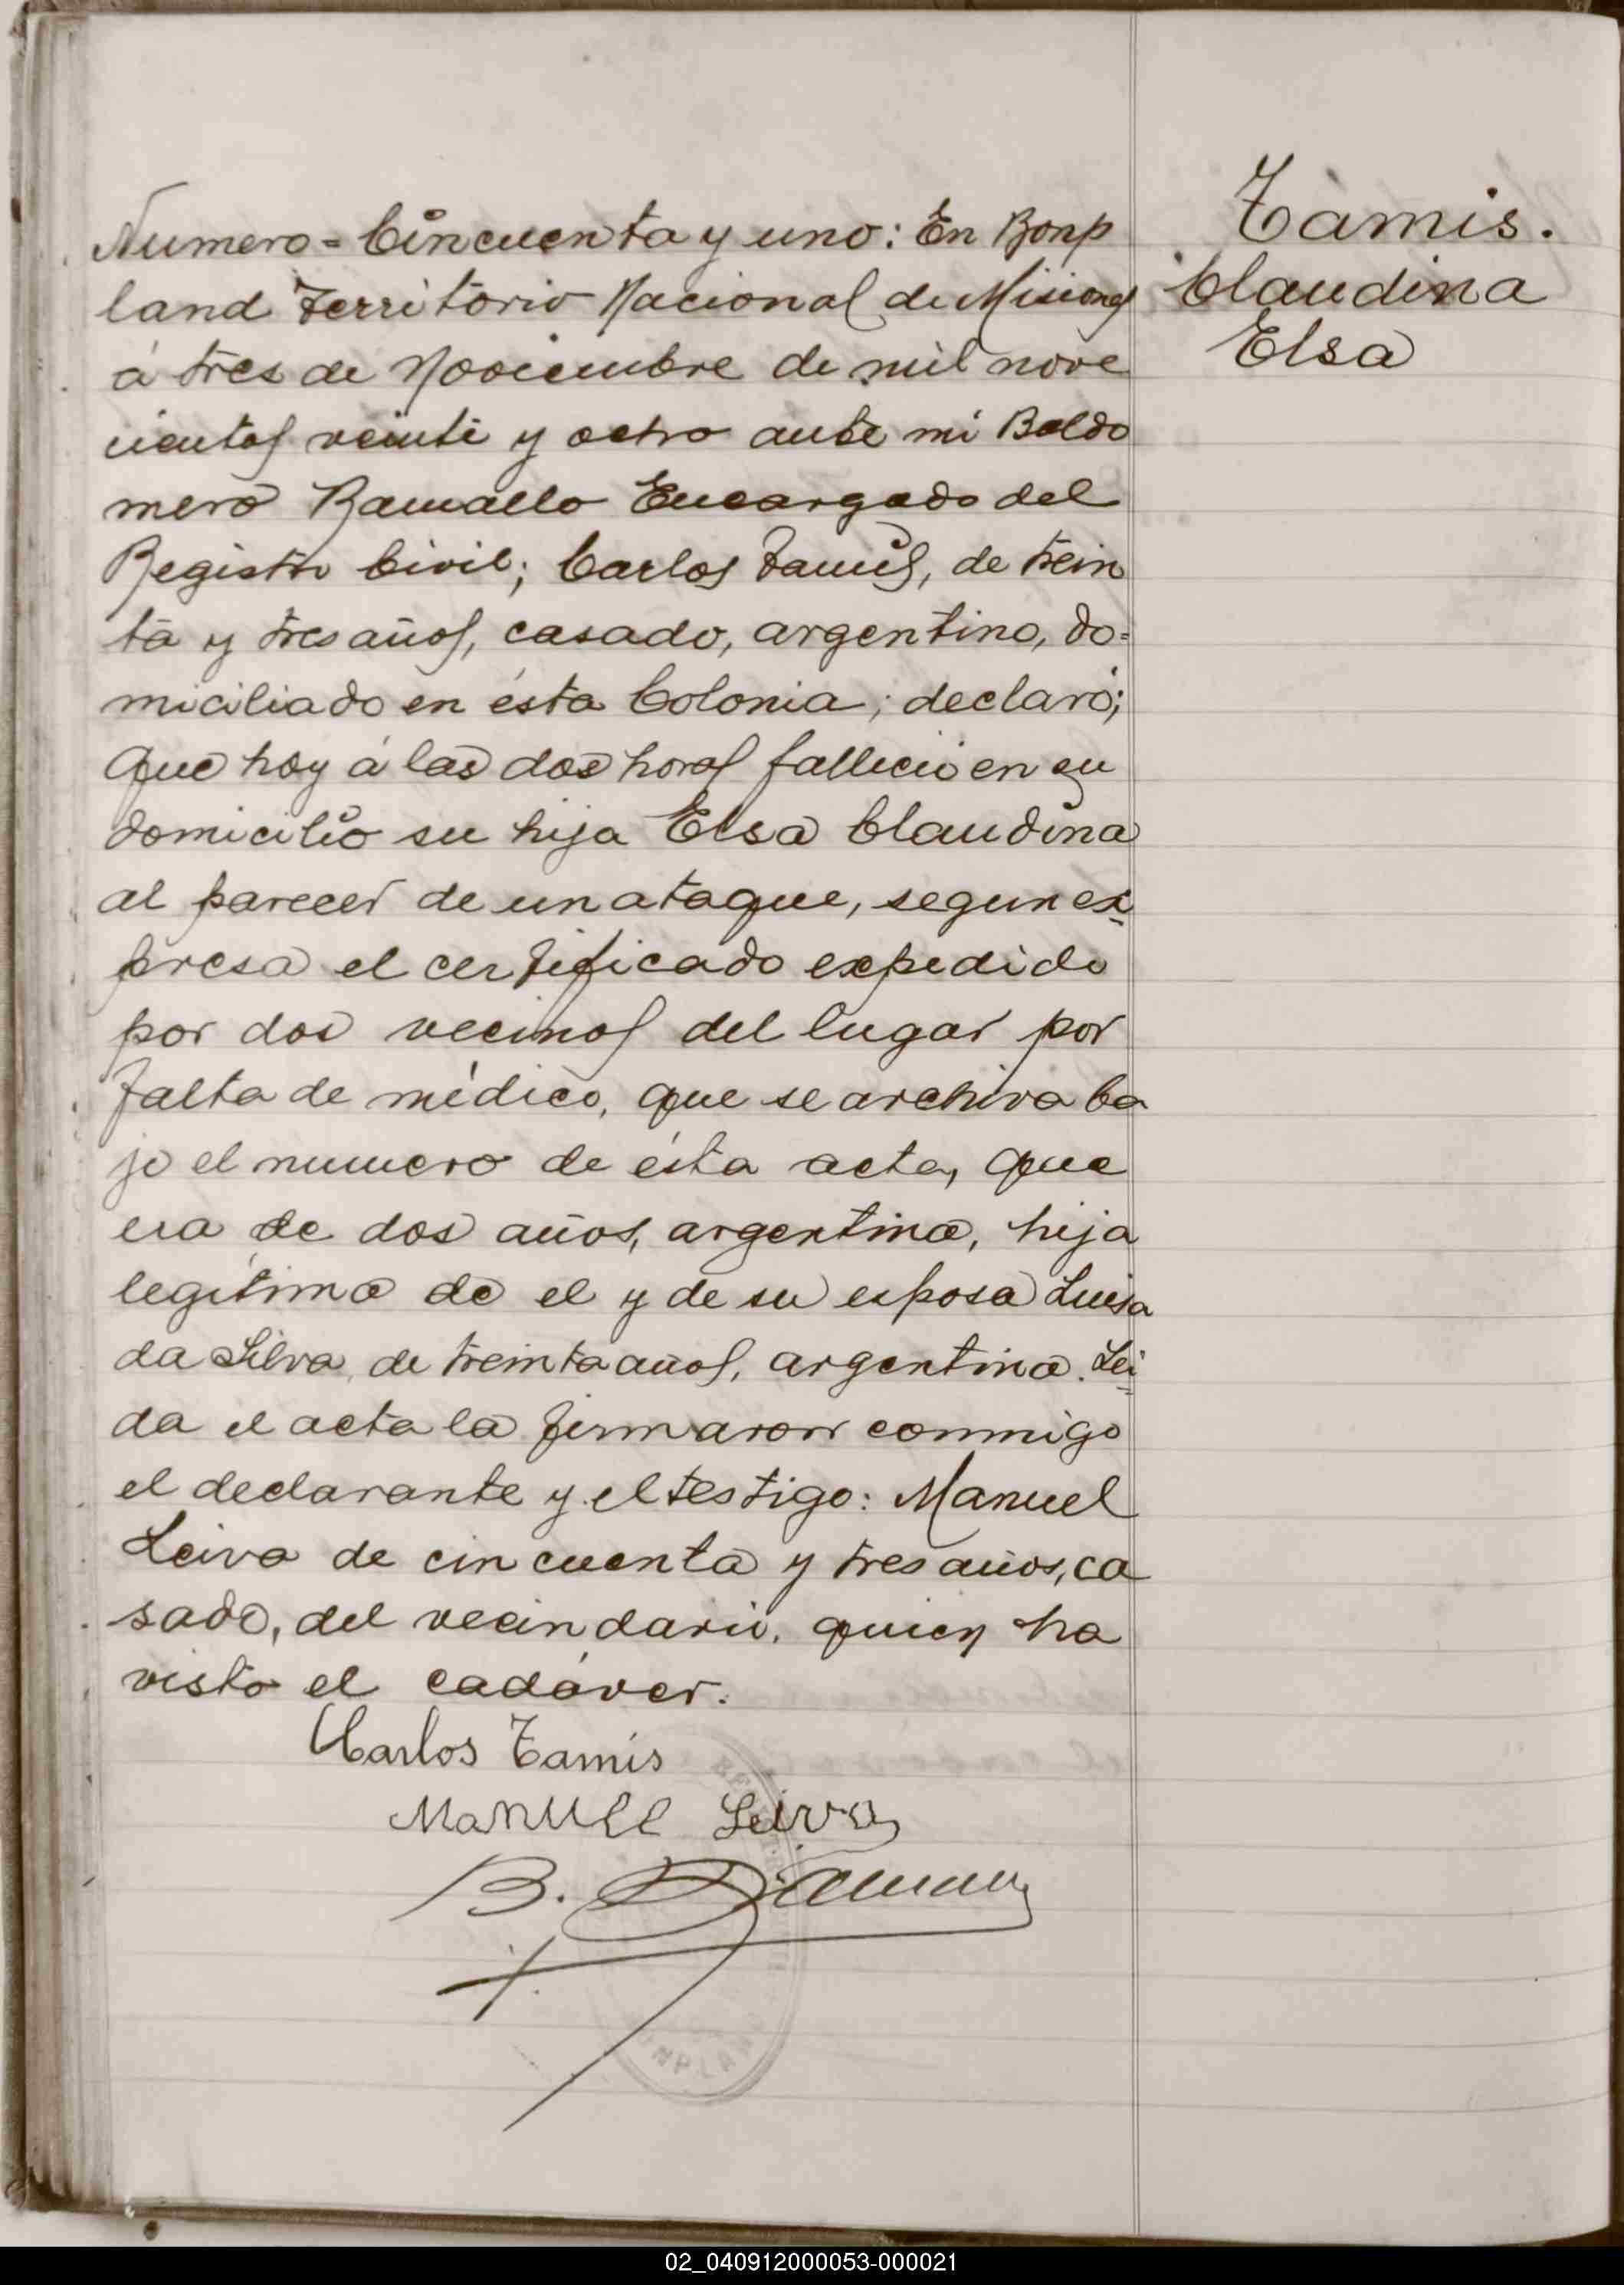 Tamis.
Claudina
Elsa
Numero = Cincuenta y uno: En Bonp
land Territorio Nacional de Misiones
á tres de Noviembre de mil nove
cientos veinte y ocho ante mi Baldo
mero Ramallo Encargado del
Registro Civil; Carlos Tamis, de trein
ta y tres años, casado, argentino, do=
miciliado en ésta Colonia; declaró;
Que hoy á las dos horas fallecio en su
domicilio su hija Elsa Claudina
al parecer de un ataque, segun ex
presa el certificado expedido
por dos vecinos del lugar por
falta de médico, que se archiva ba
jo el numero de ésta acta, que
era de dos años, argentina, hija
legítima de el y de su esposa Luisa
da Silva, de treinta años, argentina. Lei
da el acta la firmaron conmigo
el declarante y el testigo: Manuel
Leiva de cincuenta y tres años, ca
sado, del vecindario, quien ha
visto el cadáver.
Carlos Tamis
Manuel Leiva
B.
NPLAN
02_040912000053-000021